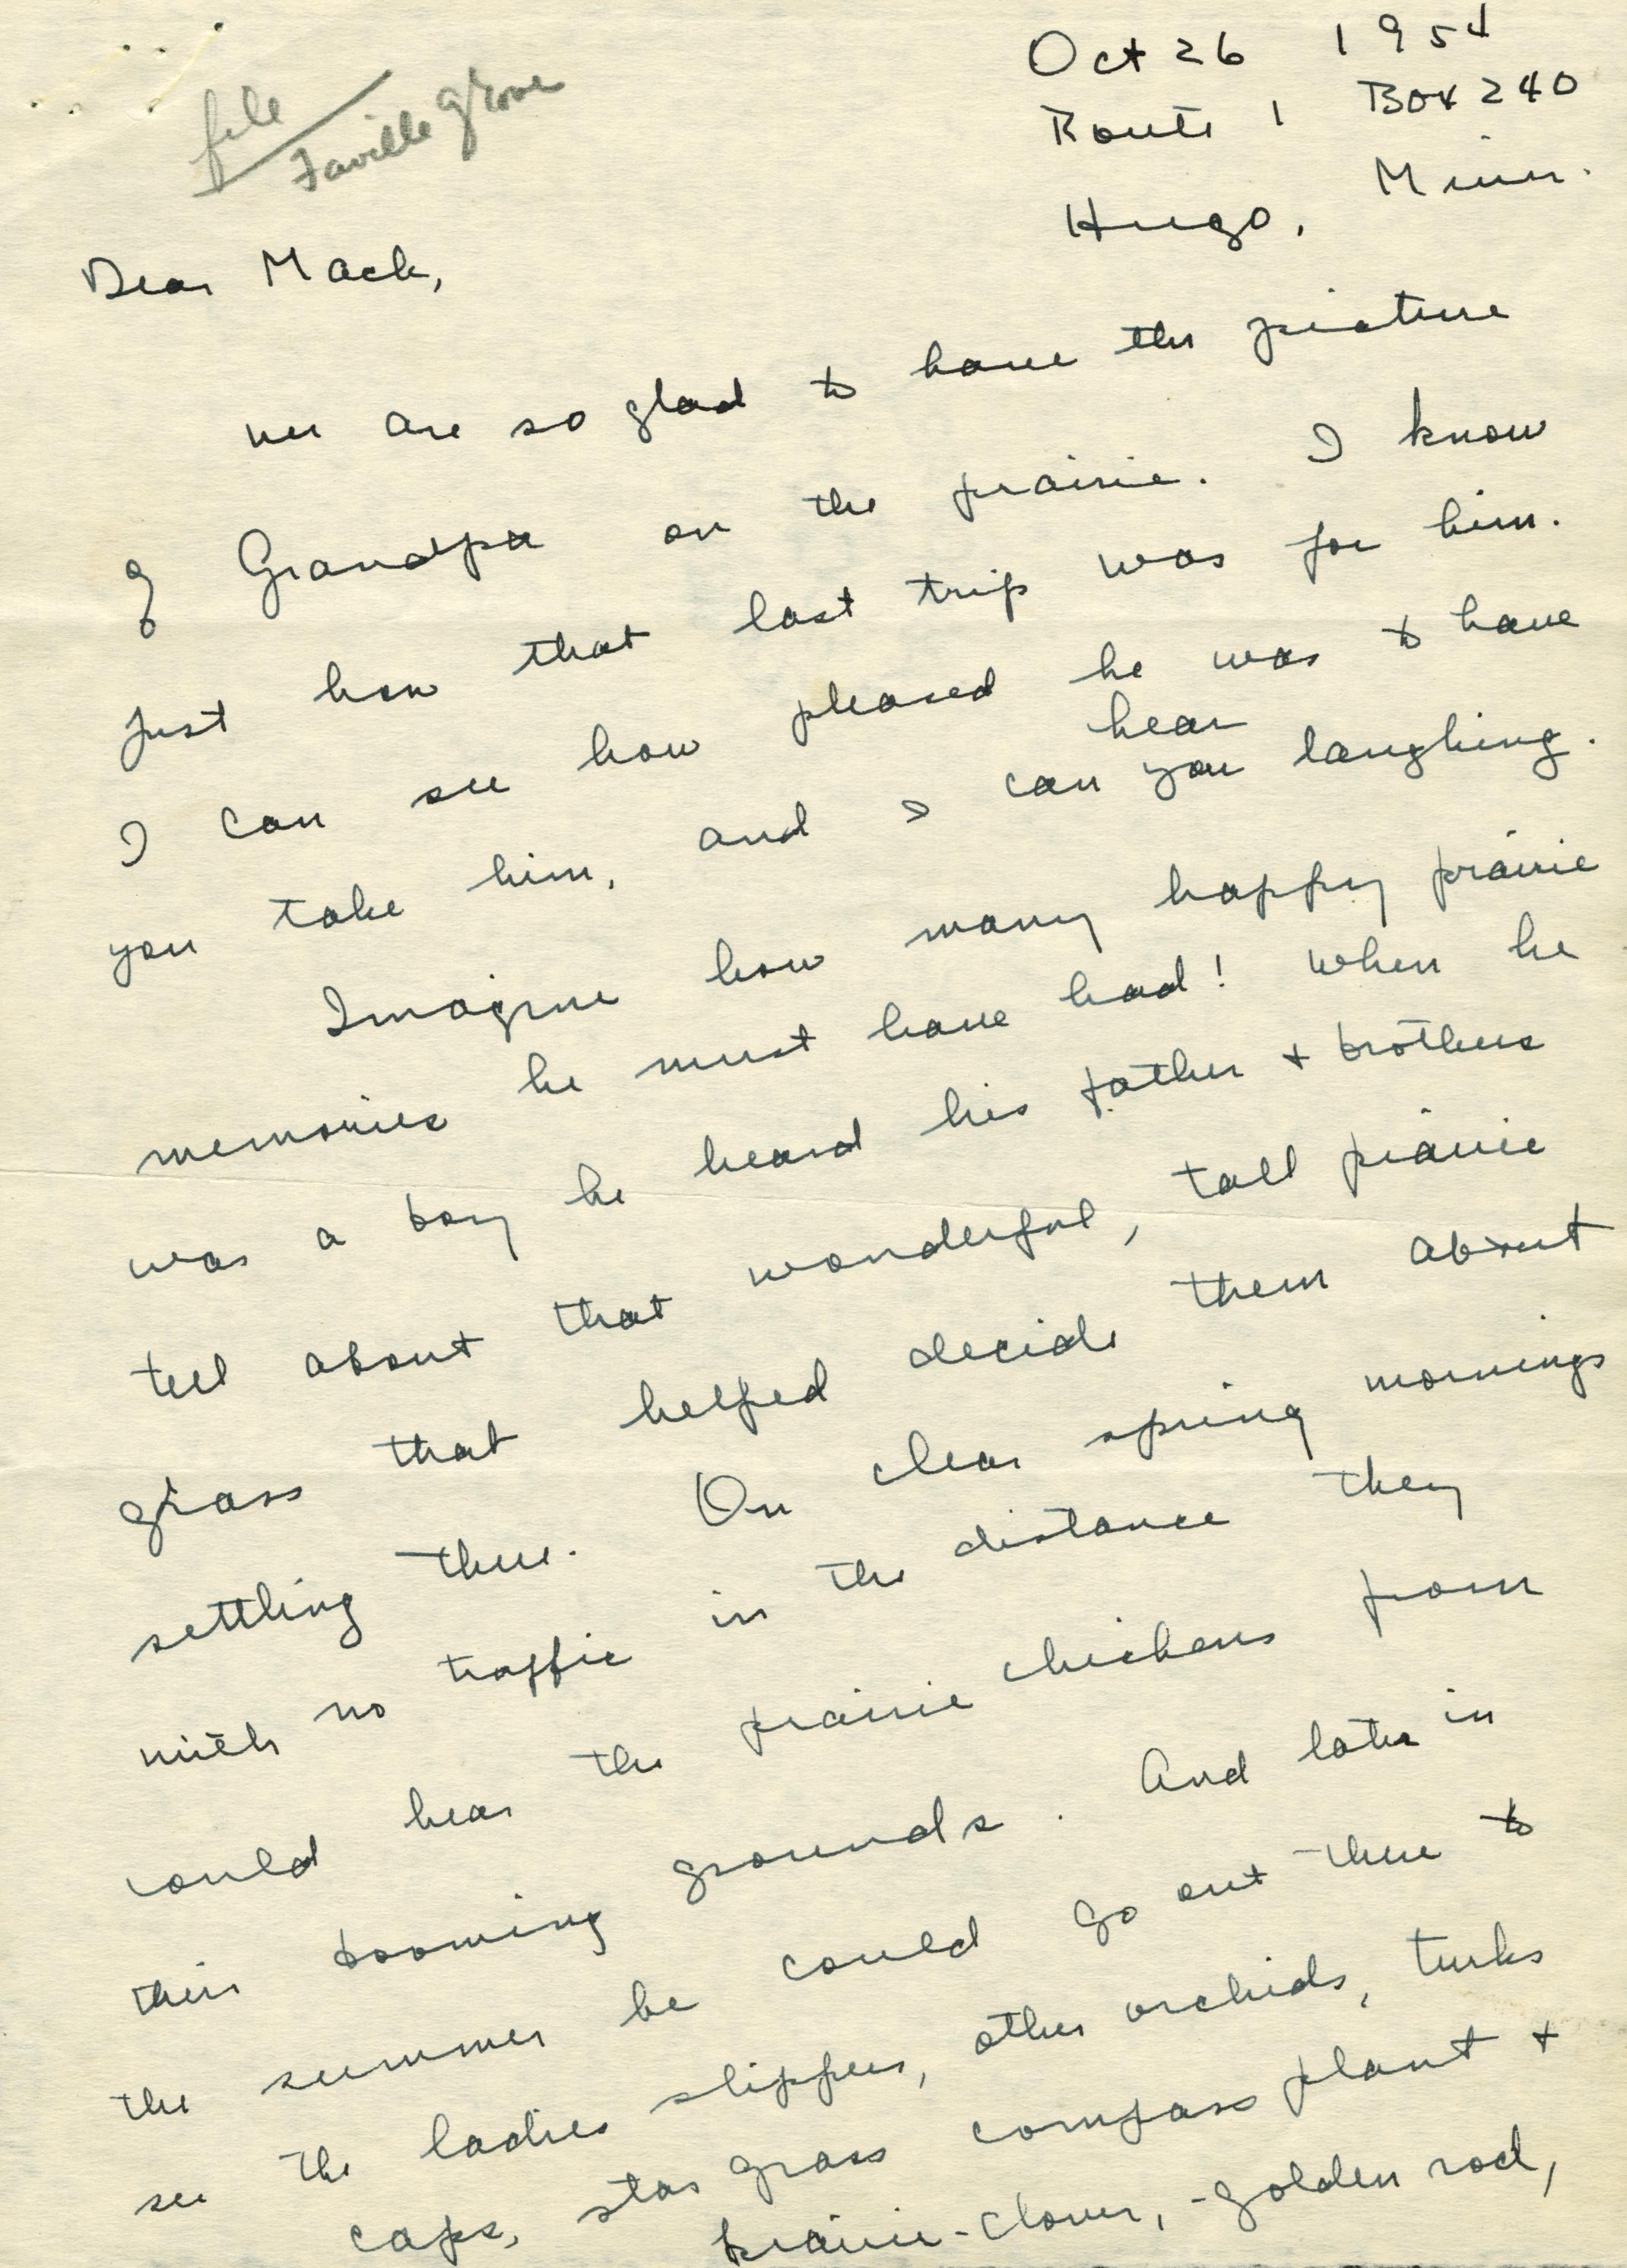 Oct 26 1954
Route 1 Box 240
Hugo, Minn.
file
Faville Grove
Dear Mack,
We are so glad to have the picture
of Grandpa on the prairie. I know
just how that last trip was for him.
I can see how pleased he was to have
you take him, and I can hear you laughing.
Imagine how many happy prairie
memories he must have had! When he
was a boy he heard his father + brothers
tell about that wonderful, tall prairie
grass that helped decide them about
settling there. On clear spring mornings
with no traffic in the distance they
could hear the prairie chickens from
their booming grounds. And later in
the summer he could go out there to
see the ladies slippers, other orchids, turks
caps, star grass compass plant +
prairie-clover, -golden rod,